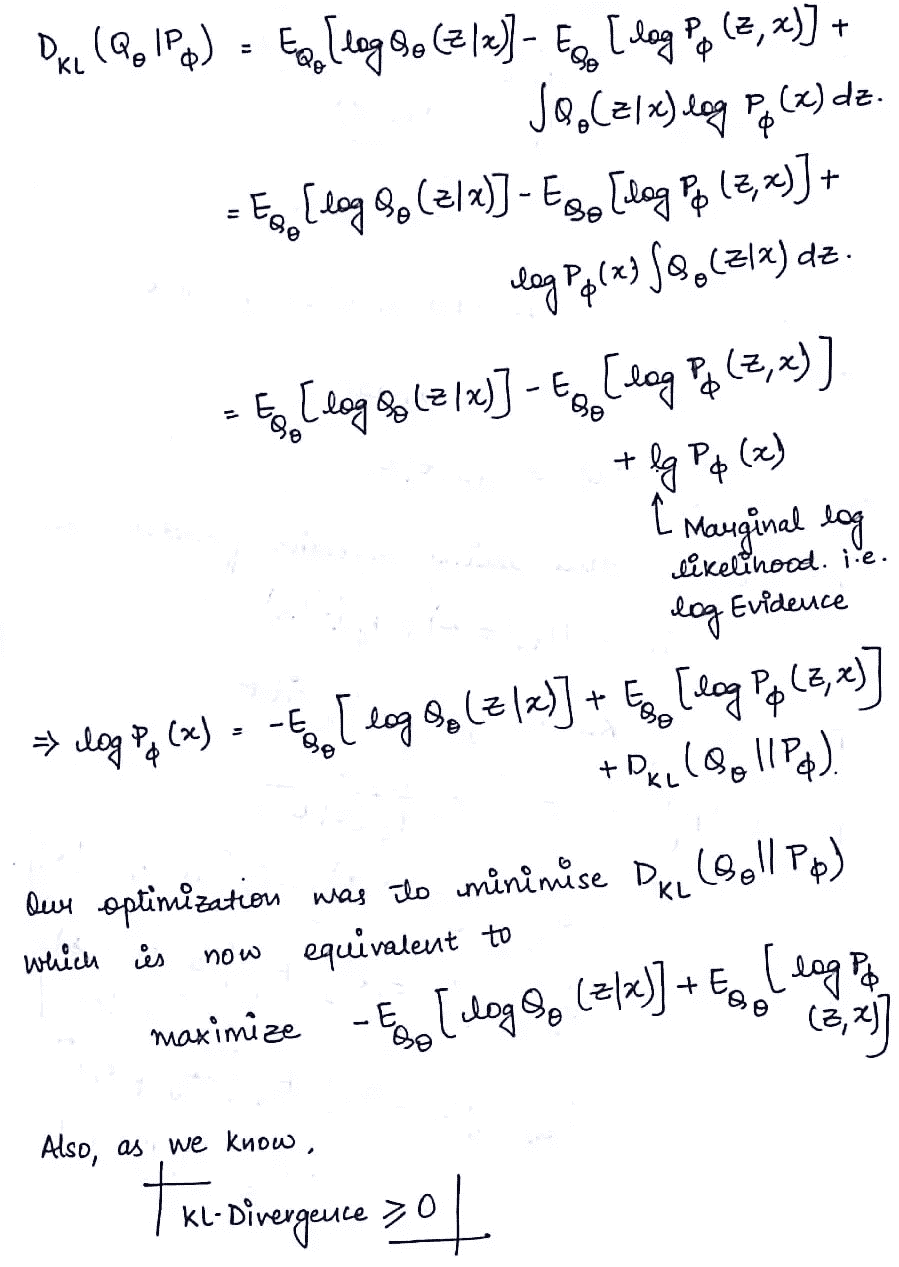 D_KL (Q_θ | P_ϕ) = E_Q_θ [log Q_θ (z|x)] - E_Q_θ [log P_ϕ (z, x)] +
∫Q_θ(z|x) log P_ϕ(x) dz.
= E_Q_θ [log Q_θ (z|x)] - E_Q_θ [log P_ϕ (z, x)] +
log P_ϕ(x) ∫Q_θ(z|x) dz.
= E_Q_θ [log Q_θ (z|x)] - E_Q_θ [log P_ϕ (z, x)]
+ lg P_ϕ (x)
↑ Marginal log
likelihood. i.e.
log Evidence
⇒ log P_ϕ (x) = -E_Q_θ [log Q_θ (z|x)] + E_Q_θ [log P_ϕ (z, x)]
+ D_KL (Q_θ || P_ϕ).
Our optimization was to minimise D_KL (Q_θ || P_ϕ)
which is now equivalent to
maximize -E_Q_θ [log Q_θ (z|x)] + E_Q_θ [log P_ϕ
(z, x)]
Also, as we know,
KL-Divergence ≥ 0